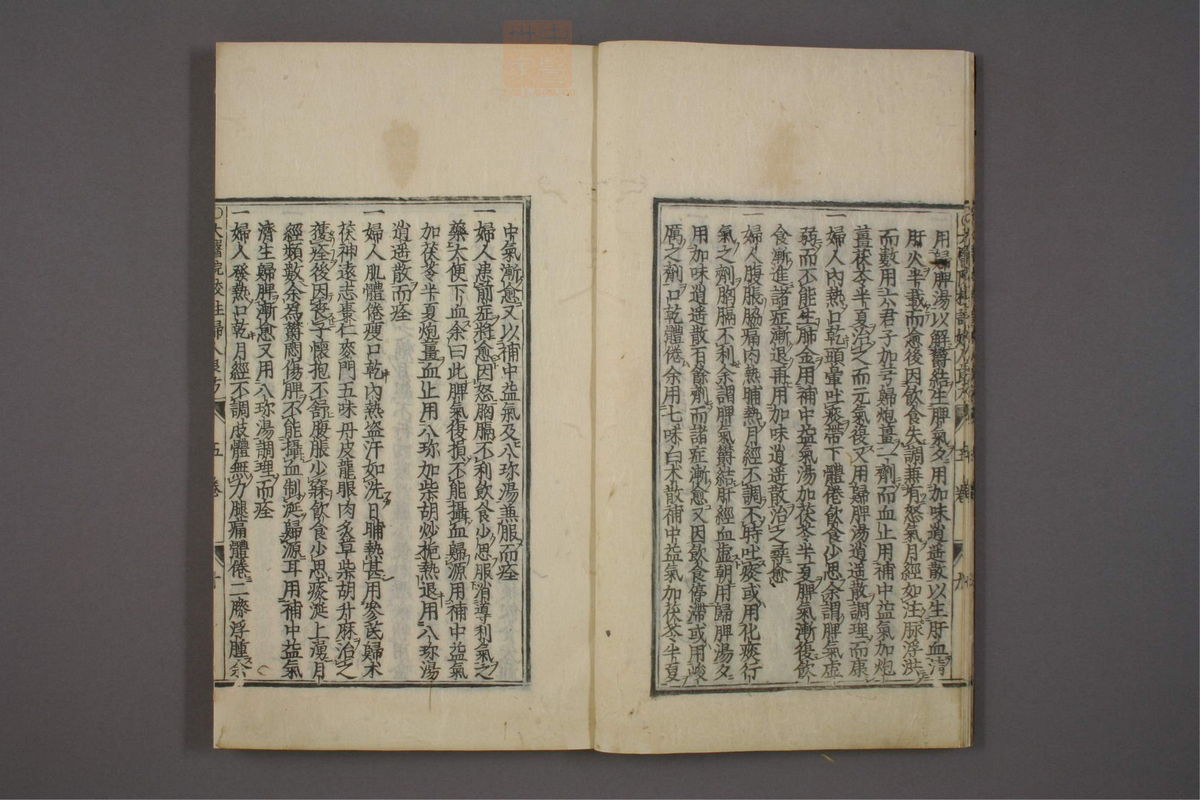 用歸脾湯以解鬱結生脾氣夕用加味逍遥散以生肝血清
肝火半載而愈後因飲食失調兼有怒氣月經如注脉浮洪
而數用六君子加芎歸炮薑一劑而血止用補中益氣加炮
薑茯苓半夏治之而元氣復又用歸脾湯逍遥散調理而康
一婦人內熱口乾頭暈吐痰帶下體倦飲食少思余謂脾氣虛
弱而不能生肺金用補中益氣湯加茯苓半夏脾氣漸復飲
食漸進諸症漸退再用加味逍遥散治之尋愈
一婦人腹脹脇痛內熱晡熱月經不調不時吐痰或用化痰行
氣之劑胸膈不利余謂脾氣鬱結肝經血虛朝用歸脾湯夕
用加味逍遥散百餘劑而諸症漸愈又因飲食停滯或用峻
厲之劑口乾體倦余用七味白朮散補中益氣加茯苓半夏
中氣漸愈又以補中益氣及八珎湯兼服而痊
一婦人患前症將愈因怒胸膈不利飲食少思服消導利氣之
藥大便下血余曰此脾氣復損不能攝血歸源用補中益氣
加茯苓半夏炮薑血止用八珎加柴胡炒梔熱退用八珎湯
逍遥散而痊
一婦人肌體倦瘦口乾內熱盗汗如洗日晡熱甚用參芪歸术
茯神遠志棗仁麥門五味丹皮龍眼肉炙草柴胡升麻治之
獲痊後因喪子懷抱不舒腹脹少寐飲食少思痰涎上湧月
經頻數余爲鬱悶傷脾不能攝血制涎歸源耳用補中益氣
濟生歸脾漸愈又用八珎湯調理而痊
一婦人發熱口乾月經不調皮體無力腿痛體倦二膝浮腫余
○太醫院校註婦人良方 五卷 十